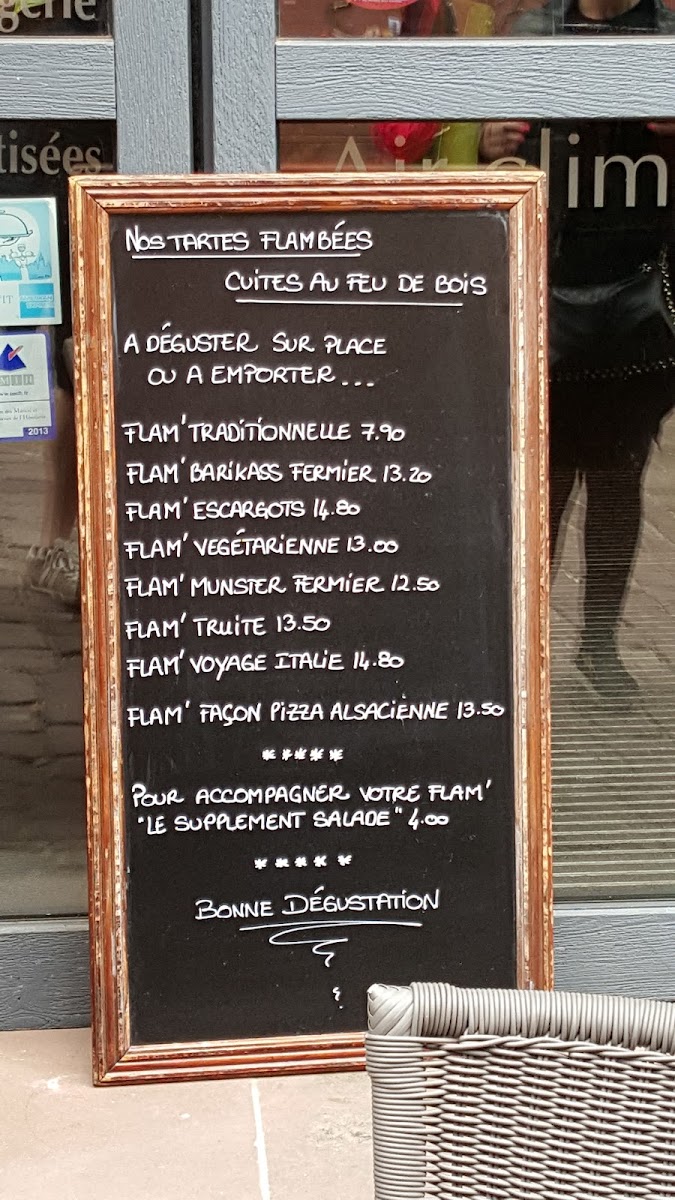 gerie
tisées
Air clim
NOS TARTES FLAMBÉES
CUITES AU FEU DE BOIS
A DÉGUSTER SUR PLACE
OU A EMPORTER...
FLAM' TRADITIONNELLE 7.90
FLAM' BARIKASS FERMIER 13.20
FLAM' ESCARGOTS 14.80
FLAM' VEGÉTARIENNE 13.00
FLAM' MUNSTER FERMIER 12.50
FLAM' TRUITE 13.50
FLAM' VOYAGE ITALIE 14.80
FLAM' FAÇON PIZZA ALSACIENNE 13.50
*****
POUR ACCOMPAGNER VOTRE FLAM'
"LE SUPPLEMENT SALADE" 4.00
*****
BONNE DÉGUSTATION
2013